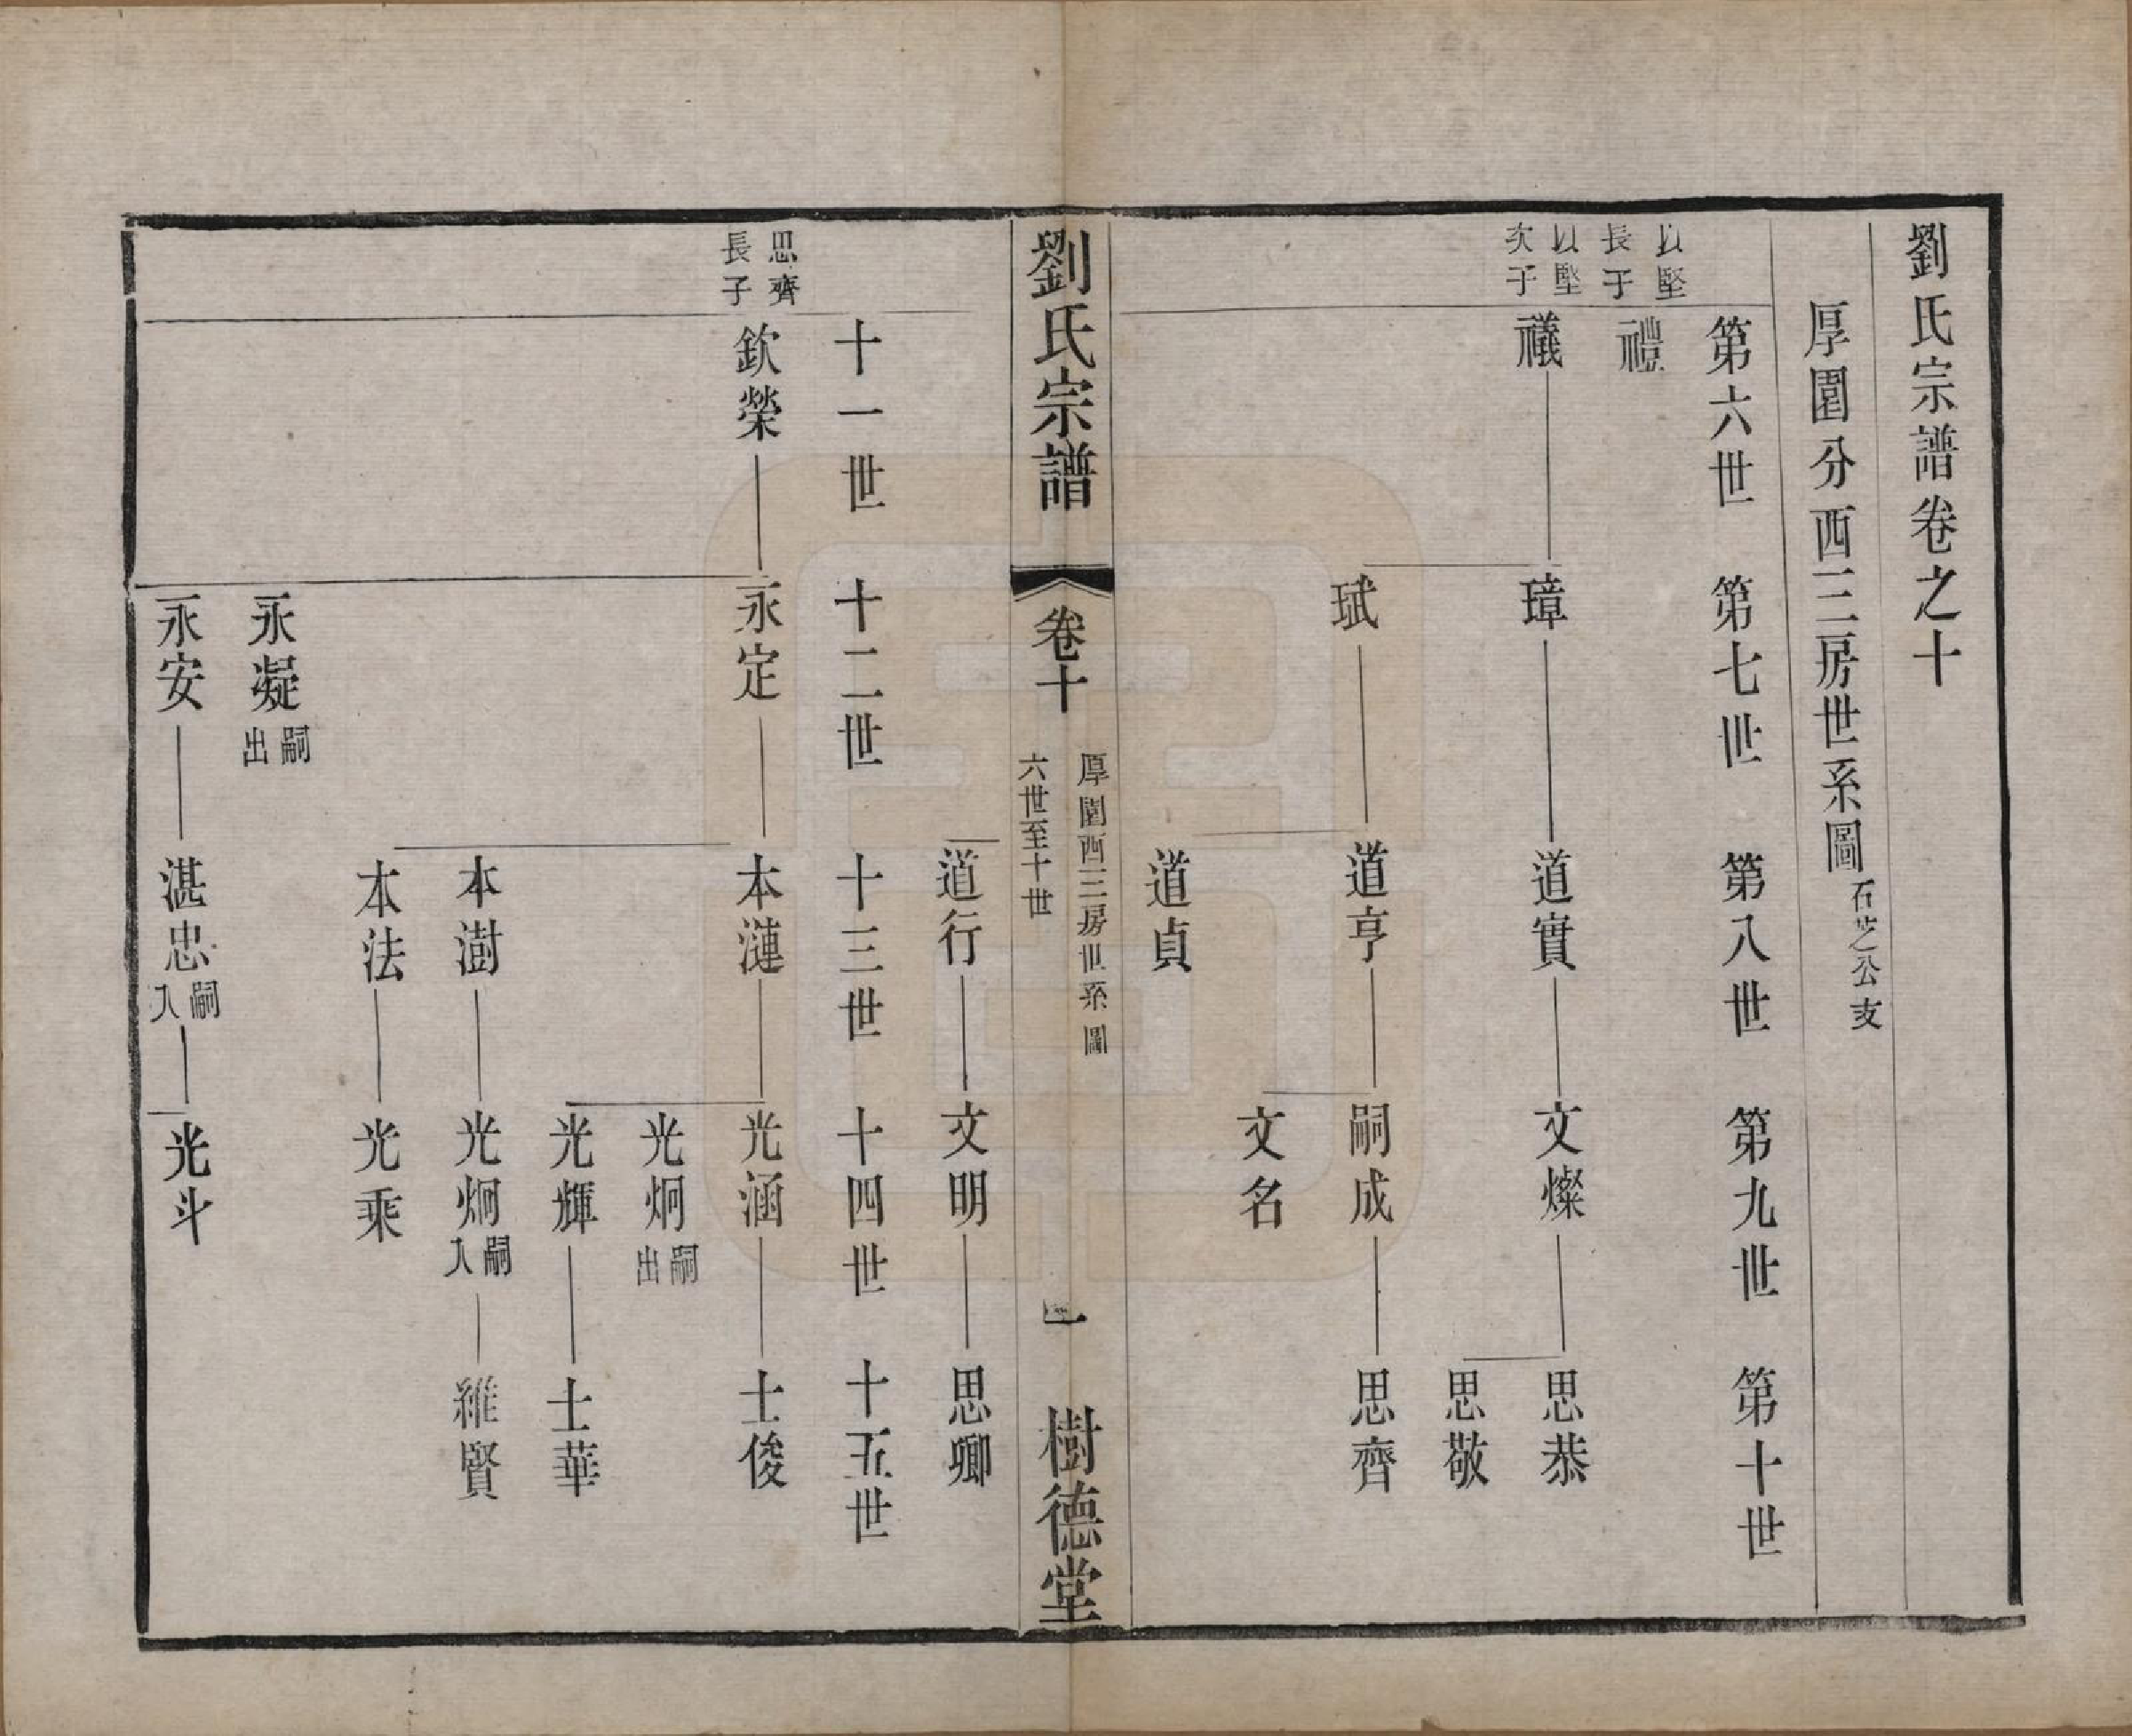 劉氏宗譜卷之十
厚園分西三房世系圖 石芝公支
第六世 第七世 第八世 第九世 第十世
以堅長子 禮
以堅次子 禨 璋 道實 文燦 思恭
思敬
珷 道亨 嗣成 思齊
文名
道貞
劉氏宗譜 卷十 厚園西三房世系圖 六世至十世 一 樹德堂
道行 文明 思卿
十一世 十二世 十三世 十四世 十五世
思齊長子 欽榮 永定 本漣 光涵 士俊
光炯 嗣出
光輝 士華
本澍 光炯 嗣入 維賢
本法 光乘
永凝 嗣出
永安 湛忠 嗣入 光斗